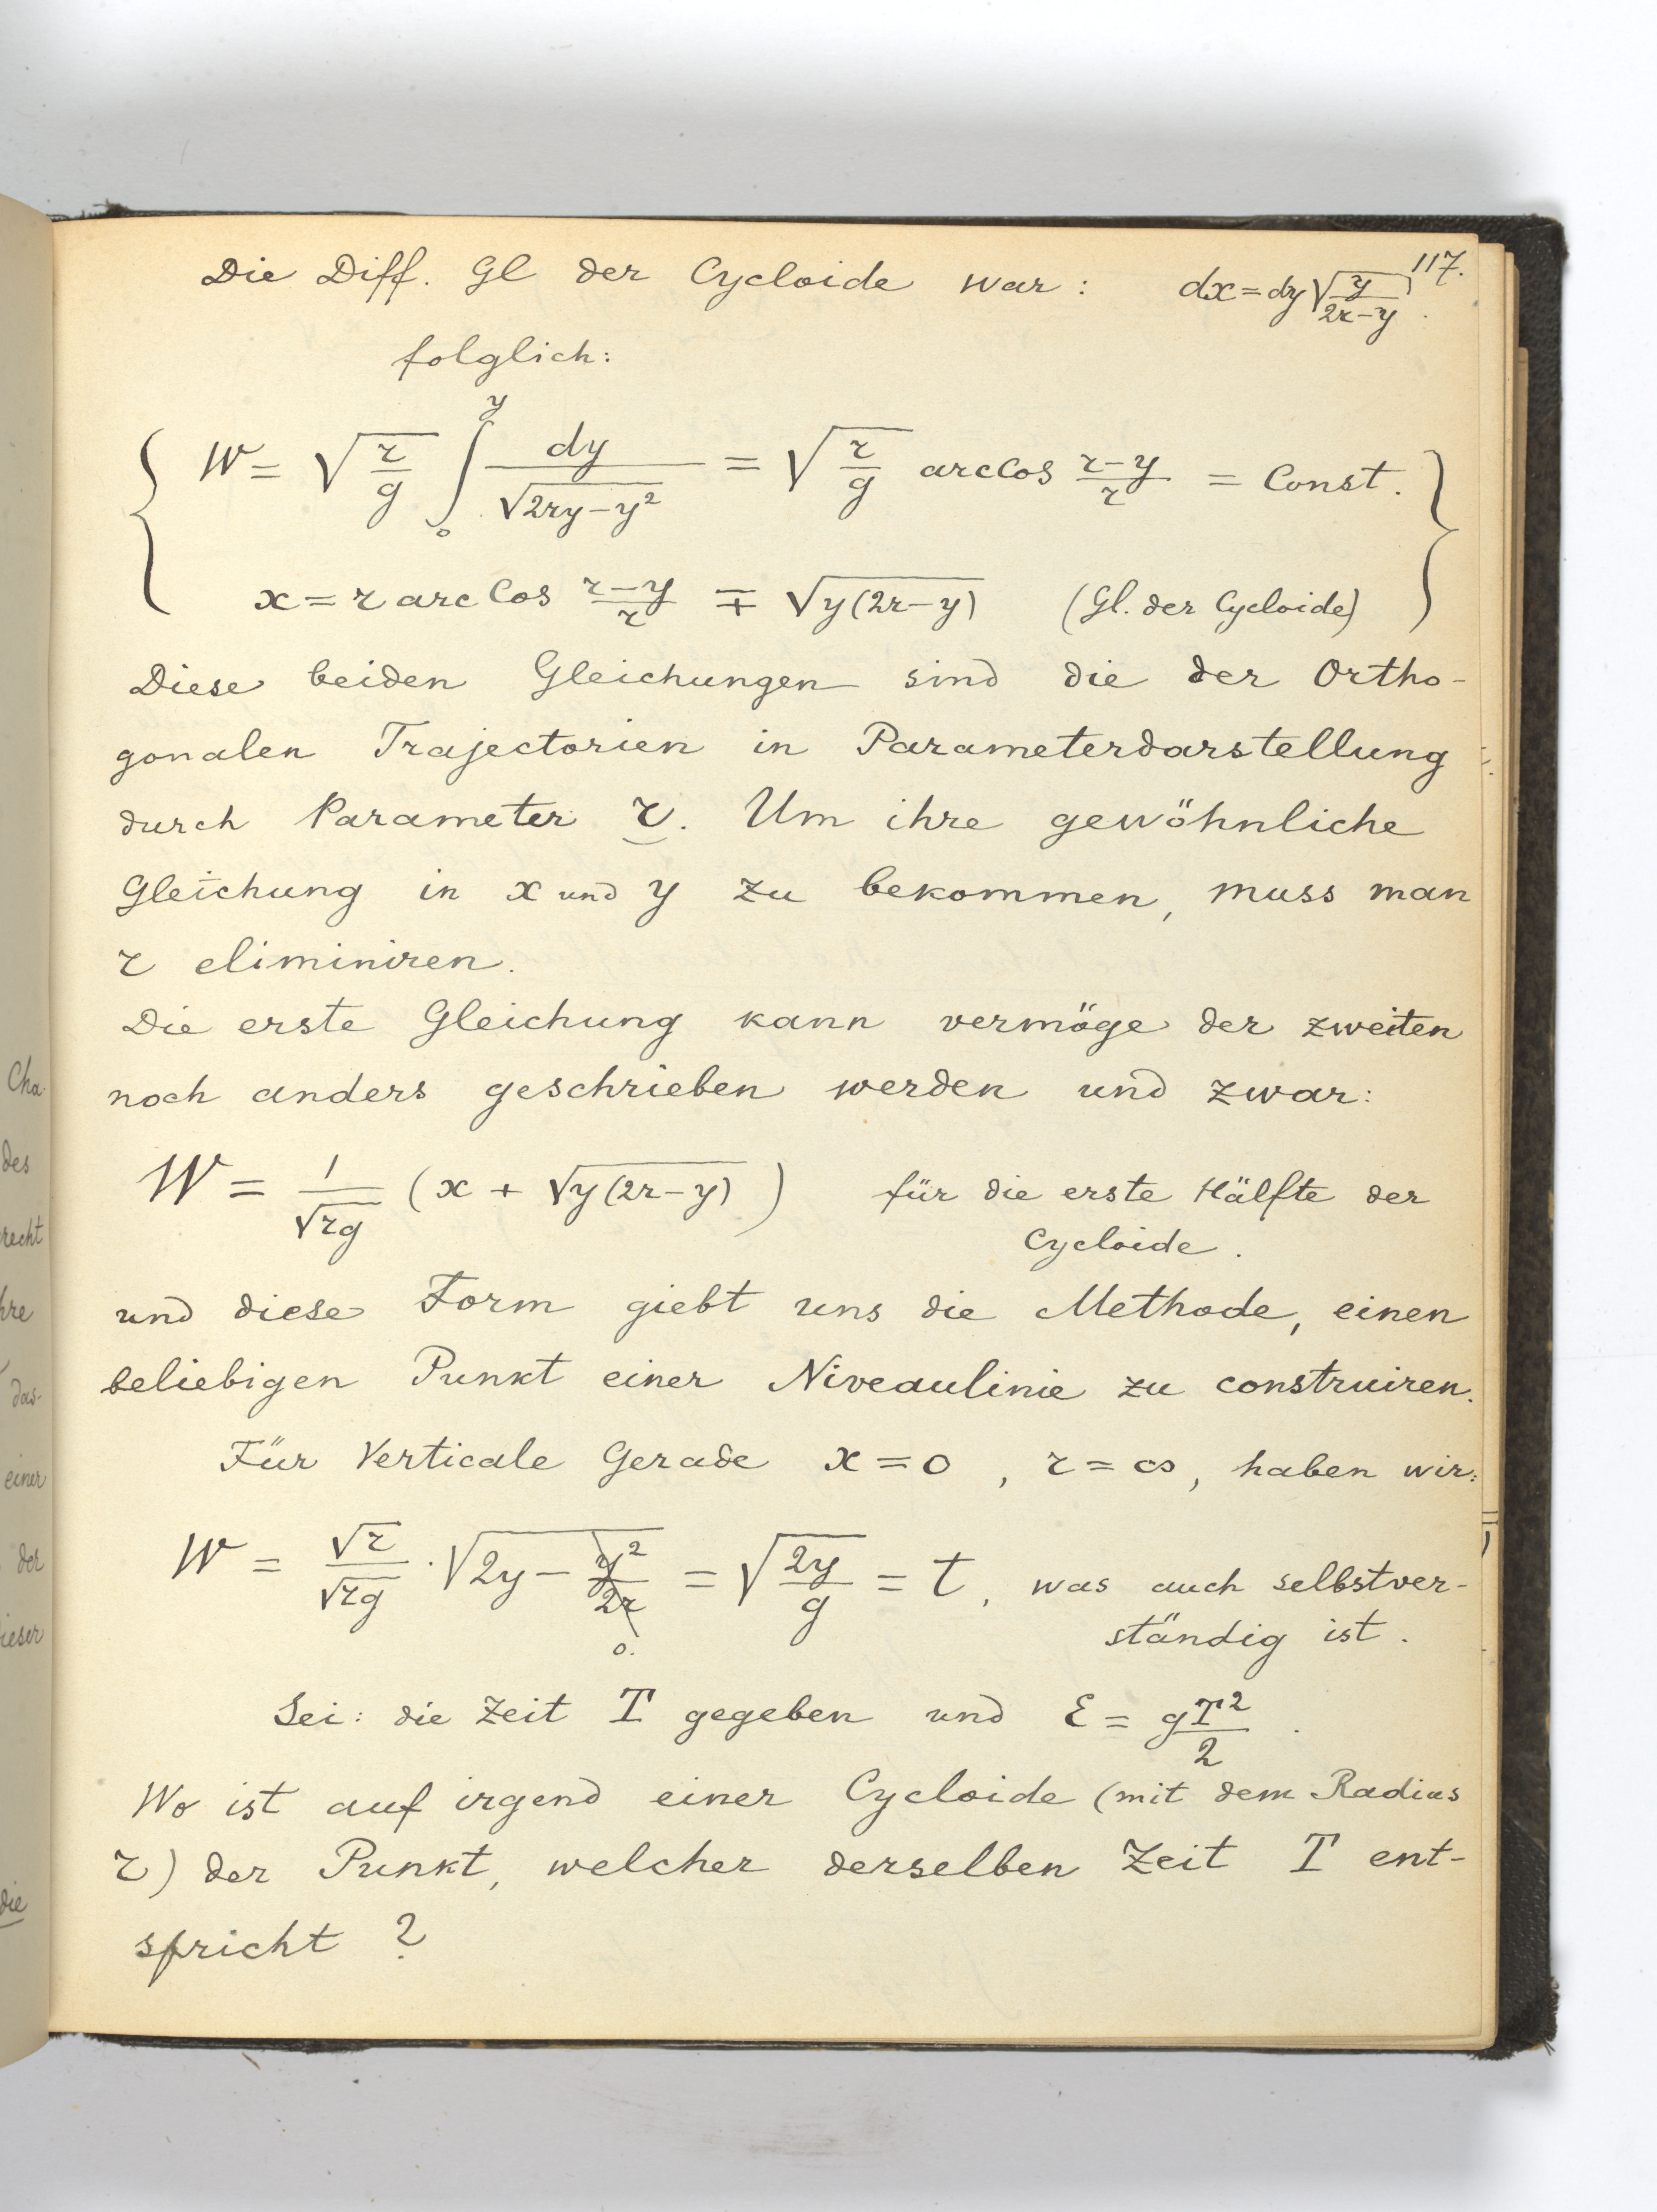 117.
Die Diff. Gl der Cycloide war: dx = dy √(y/(2r−y)).
folglich:
W = √(r/g) ∫₀^y dy/√(2ry−y²) = √(r/g) arccos (r−y)/r = Const.
x = r arc cos (r−y)/r ∓ √(y(2r−y)) (Gl. der Cycloide)
Diese beiden Gleichungen sind die der Ortho-
gonalen Trajectorien in Parameterdarstellung
durch Parameter r. Um ihre gewöhnliche
Gleichung in x und y zu bekommen, muss man
r eliminiren.
Die erste Gleichung kann vermöge der zweiten
noch anders geschrieben werden und zwar:
W = 1/√(rg) (x + √(y(2r−y))) für die erste Hälfte der
Cycloide.
und diese Form giebt uns die Methode, einen
beliebigen Punkt einer Niveaulinie zu construiren.
Für Verticale Gerade x = 0, r = ∞, haben wir:
W = √r/√(rg) · √(2y − y²/2r) = √(2y/g) = t, was auch selbstver-
0.
ständig ist.
Sei: die Zeit T gegeben und ε = gT²/2.
Wo ist auf irgend einer Cycloide (mit dem Radius
r) der Punkt, welcher derselben Zeit T ent-
spricht?
Cha-
des
recht
hre
das-
einer
der
dieser
die